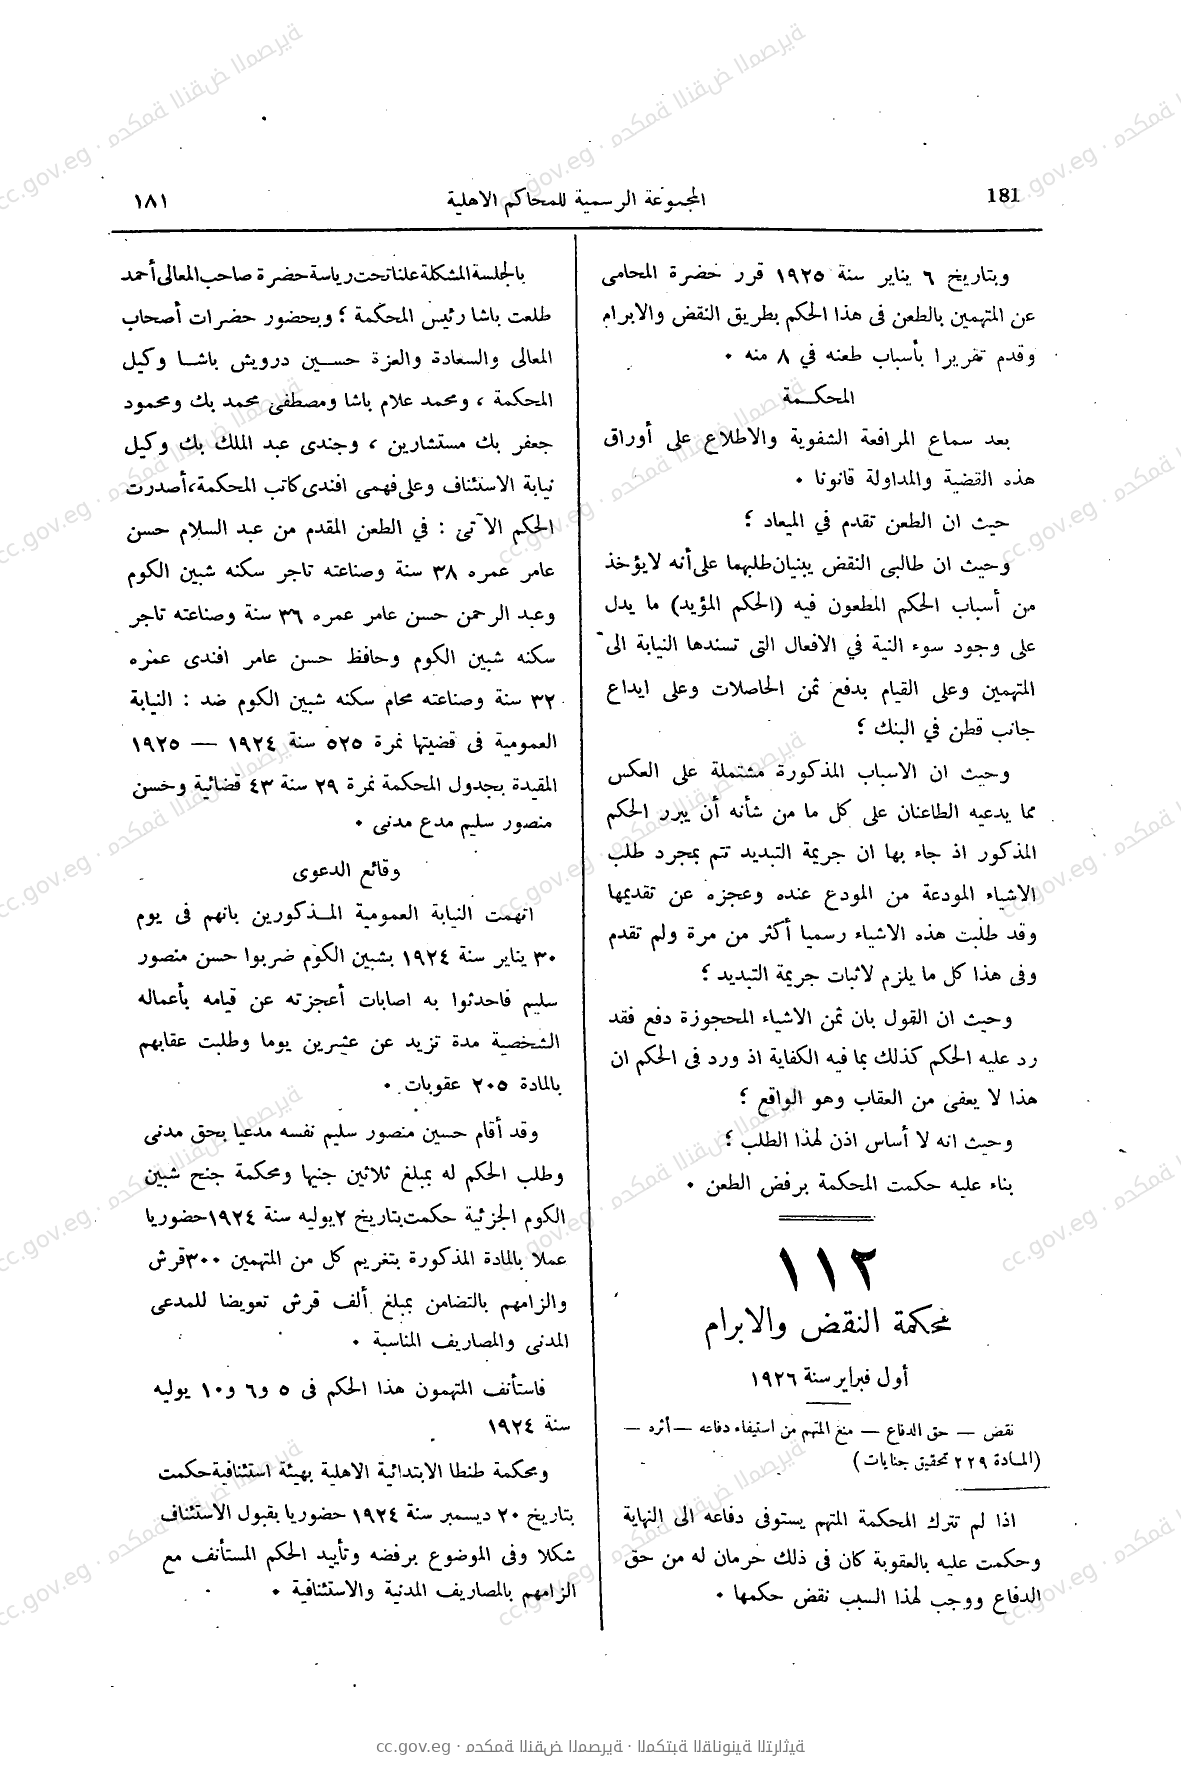 181
المجموعة الرسمية للمحاكم الاهلية
١٨١
وبتاريخ ٦ يناير سنة ١٩٢٥ قرر حضرة المحامى
عن المتهمين بالطعن فى هذا الحكم بطريق النقض والابرام
وقدم تقريرا بأسباب طعنه في ٨ منه ٠
المحكمة
بعد سماع المرافعة الشفوية والاطلاع على أوراق
هذه القضية والمداولة قانونا ٠
حيث ان الطعن تقدم في الميعاد ؛
وحيث ان طالبى النقض يبنيان طلبهما على أنه لا يؤخذ
من أسباب الحكم المطعون فيه (الحكم المؤيد) ما يدل
على وجود سوء النية في الافعال التى تسندها النيابة الى
المتهمين وعلى القيام بدفع ثمن الحاصلات وعلى ايداع
جانب قطن في البنك ؛
وحيث ان الاسباب المذكورة مشتملة على العكس
مما يدعيه الطاعنان على كل ما من شأنه أن يبرر الحكم
المذكور اذ جاء بها ان جريمة التبديد تتم بمجرد طلب
الاشياء المودعة من المودع عنده وعجزه عن تقديمها
وقد طلبت هذه الاشياء رسميا أكثر من مرة ولم تقدم
وفى هذا كل ما يلزم لاثبات جريمة التبديد ؛
وحيث ان القول بان ثمن الاشياء المحجوزة دفع فقد
رد عليه الحكم كذلك بما فيه الكفاية اذ ورد فى الحكم ان
هذا لا يعفى من العقاب وهو الواقع ؛
وحيث انه لا أساس اذن لهذا الطلب ؛
بناء عليه حكمت المحكمة برفض الطعن ٠
١١٢
محكمة النقض والابرام
أول فبراير سنة ١٩٢٦
نقض — حق الدفاع — منع المتهم من استيفاء دفاعه — أثره —
(المادة ٢٢٩ تحقيق جنايات)
اذا لم تترك المحكمة المتهم يستوفى دفاعه الى النهاية
وحكمت عليه بالعقوبة كان فى ذلك حرمان له من حق
الدفاع ووجب لهذا السبب نقض حكمها ٠
بالجلسة المشكلة علنا تحت رياسة حضرة صاحب المعالى أحمد
طلعت باشا رئيس المحكمة ؛ وبحضور حضرات أصحاب
المعالى والسعادة والعزة حسين درويش باشا وكيل
المحكمة ، ومحمد علام باشا ومصطفى محمد بك ومحمود
جعفر بك مستشارين ، وجندى عبد الملك بك وكيل
نيابة الاستئناف وعلى فهمى افندى كاتب المحكمة، أصدرت
الحكم الآتى : في الطعن المقدم من عبد السلام حسن
عامر عمره ٣٨ سنة وصناعته تاجر سكنه شبين الكوم
وعبد الرحمن حسن عامر عمره ٣٦ سنة وصناعته تاجر
سكنه شبين الكوم وحافظ حسن عامر افندى عمره
٣٢ سنة وصناعته محام سكنه شبين الكوم ضد : النيابة
العمومية فى قضيتها نمرة ٥٢٥ سنة ١٩٢٤ — ١٩٢٥
المقيدة بجدول المحكمة نمرة ٢٩ سنة ٤٣ قضائية وحسن
منصور سليم مدع مدنى ٠
وقائع الدعوى
اتهمت النيابة العمومية المذكورين بانهم فى يوم
٣٠ يناير سنة ١٩٢٤ بشبين الكوم ضربوا حسن منصور
سليم فاحدثوا به اصابات أعجزته عن قيامه بأعماله
الشخصية مدة تزيد عن عشرين يوما وطلبت عقابهم
بالمادة ٢٠٥ عقوبات ٠
وقد أقام حسين منصور سليم نفسه مدعيا بحق مدنى
وطلب الحكم له بمبلغ ثلاثين جنيها ومحكمة جنح شبين
الكوم الجزئية حكمت بتاريخ ٢ يوليه سنة ١٩٢٤ حضوريا
عملا بالمادة المذكورة بتغريم كل من المتهمين ٣٠٠ قرش
والزامهم بالتضامن بمبلغ ألف قرش تعويضا للمدعى
المدنى والمصاريف المناسبة ٠
فاستأنف المتهمون هذا الحكم فى ٥ و٦ و١٠ يوليه
سنة ١٩٢٤
ومحكمة طنطا الابتدائية الاهلية بهيئة استئنافية حكمت
بتاريخ ٢٠ ديسمبر سنة ١٩٢٤ حضوريا بقبول الاستئناف
شكلا وفى الموضوع برفضه وتأييد الحكم المستأنف مع
الزامهم بالمصاريف المدنية والاستئنافية ٠
cc.gov.eg · محكمة النقض المصرية · المكتبة القانونية التراثية